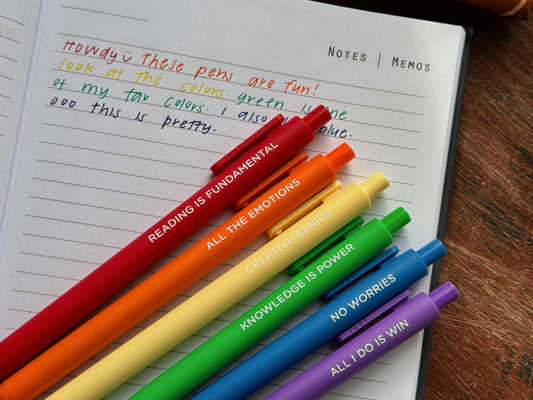 NOTES | MEMOS
Howdy these pens are fun!
look at the colors. green is one
of my fav colors. I also blue.
ooo this is pretty.
READING IS FUNDAMENTAL
ALL THE EMOTIONS
CREATIVE GENIUS
KNOWLEDGE IS POWER
NO WORRIES
ALL I DO IS WIN